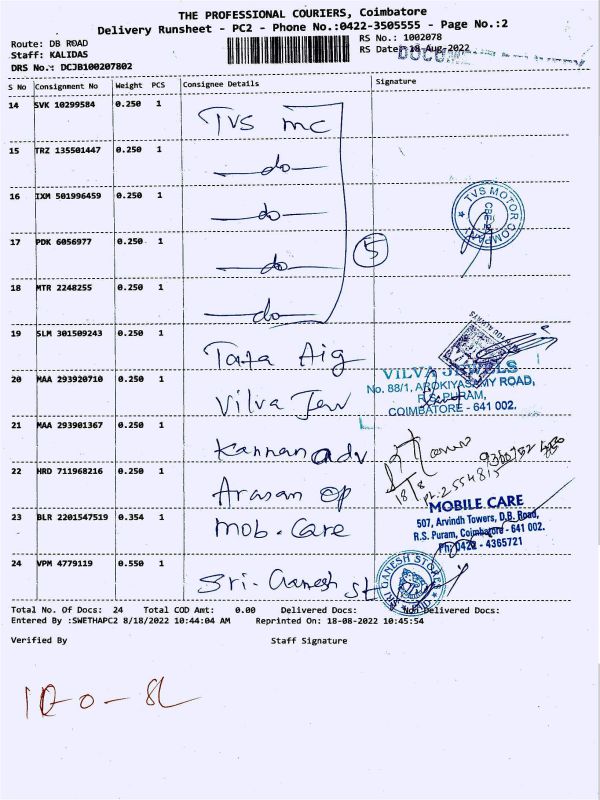 THE PROFESSIONAL COURIERS, Coimbatore
Delivery Runsheet - PC2 - Phone No.:0422-3505555 - Page No.:2
Route: DB ROAD
RS No.: 1002078
Staff: KALIDAS
RS Date: 18-Aug-2022
DRS No.: DCJB100207802
S No Consignment No Weight PCS Consignee Details Signature
14 SVK 10299584 0.250 1 TVS mc
15 TRZ 135501447 0.250 1 —do—
16 IXM 501996459 0.250 1 —do—
TVS MOTOR COMPANY
17 PDK 6056977 0.250 1 —do— 5
18 MTR 2248255 0.250 1 —do—
19 SLM 301509243 0.250 1 Tata Aig
20 MAA 293920710 0.250 1 Vilva Jew
VILVA JEWELS
No. 88/1, AROKIYASAMY ROAD,
R.S. PURAM,
COIMBATORE - 641 002.
21 MAA 293901367 0.250 1 Kannan adv
22 HRD 711968216 0.250 1 Arasan op
18/8
23 BLR 2201547519 0.354 1 Mob. Care
MOBILE CARE
507, Arvindh Towers, D.B. Road,
R.S. Puram, Coimbatore - 641 002.
Ph: 0422 - 4365721
24 VPM 4779119 0.550 1 Sri. Ganesh st
SRI GANESH STORES
Total No. Of Docs: 24 Total COD Amt: 0.00 Delivered Docs: Non-Delivered Docs:
Entered By :SWETHAPC2 8/18/2022 10:44:04 AM Reprinted On: 18-08-2022 10:45:54
Verified By Staff Signature